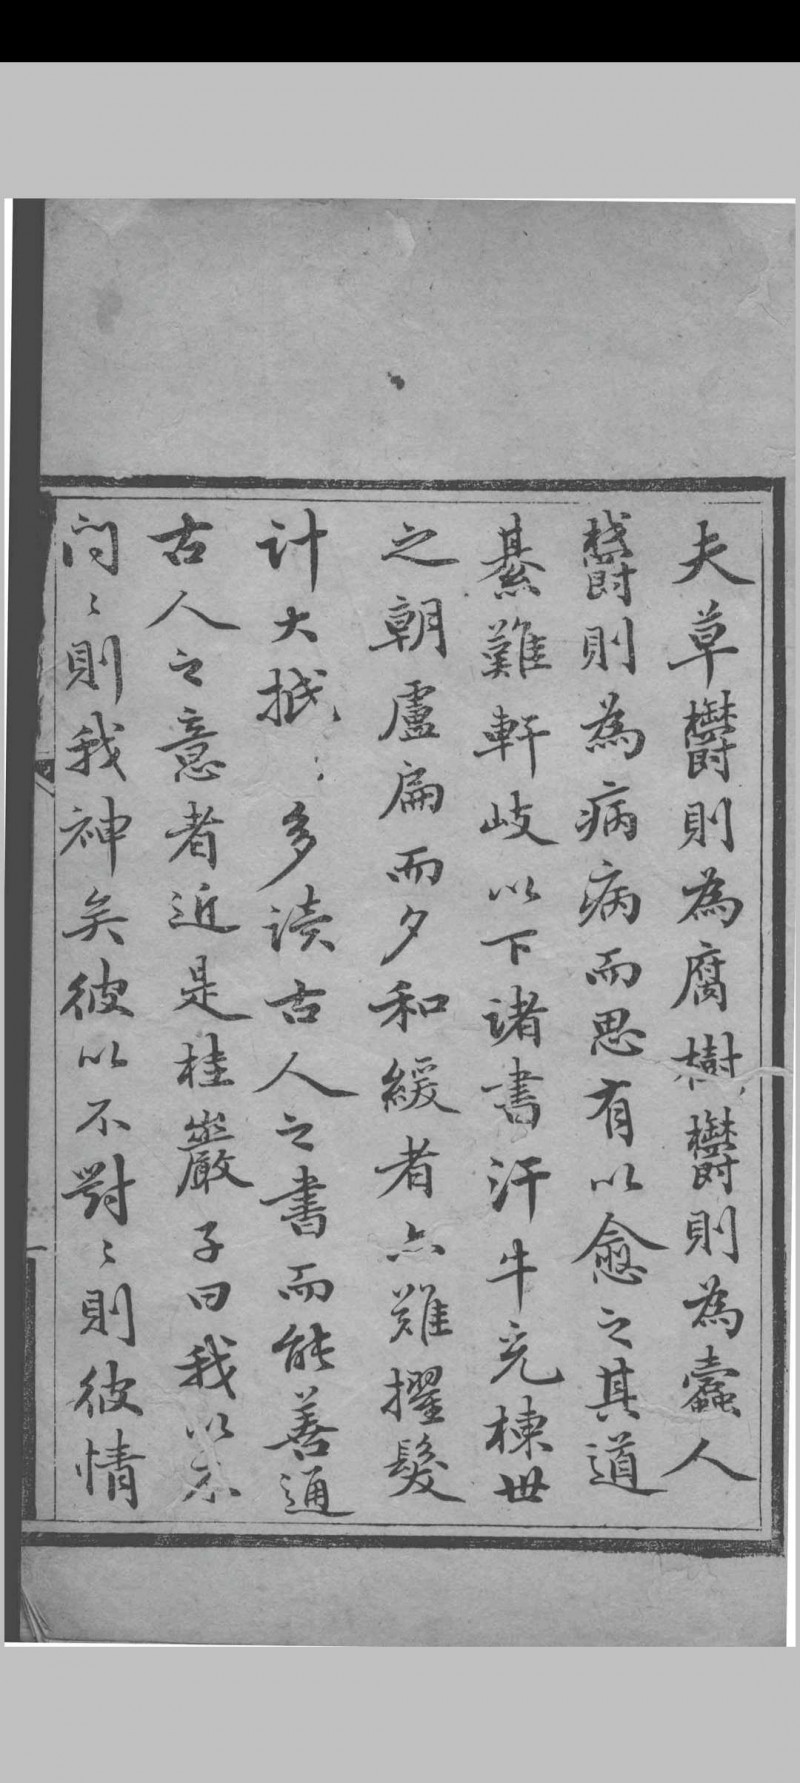 夫草欝則為腐樹欝則為蠹人
欝則為病病而思有以愈之其道
綦難軒岐以下諸書汗牛充棟世
之朝盧扁而夕和緩者亦難擢髮
計大抵〻多读古人之書而能善通
古人之意者近是桂巖子曰我以不
问〻則我神矣彼以不對〻則彼情